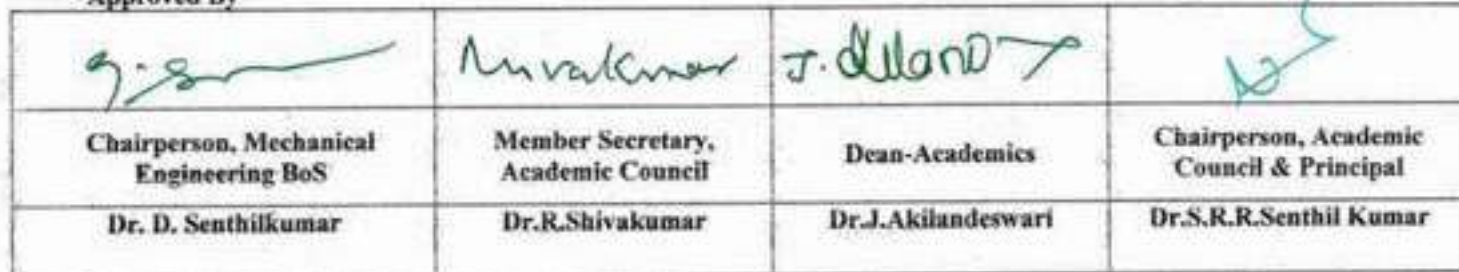 Approved By
Chairperson, Mechanical
Engineering BoS
Member Secretary,
Academic Council
Dean-Academics
Chairperson, Academic
Council & Principal
Dr. D. Senthilkumar
Dr.R.Shivakumar
Dr.J.Akilandeswari
Dr.S.R.R.Senthil Kumar